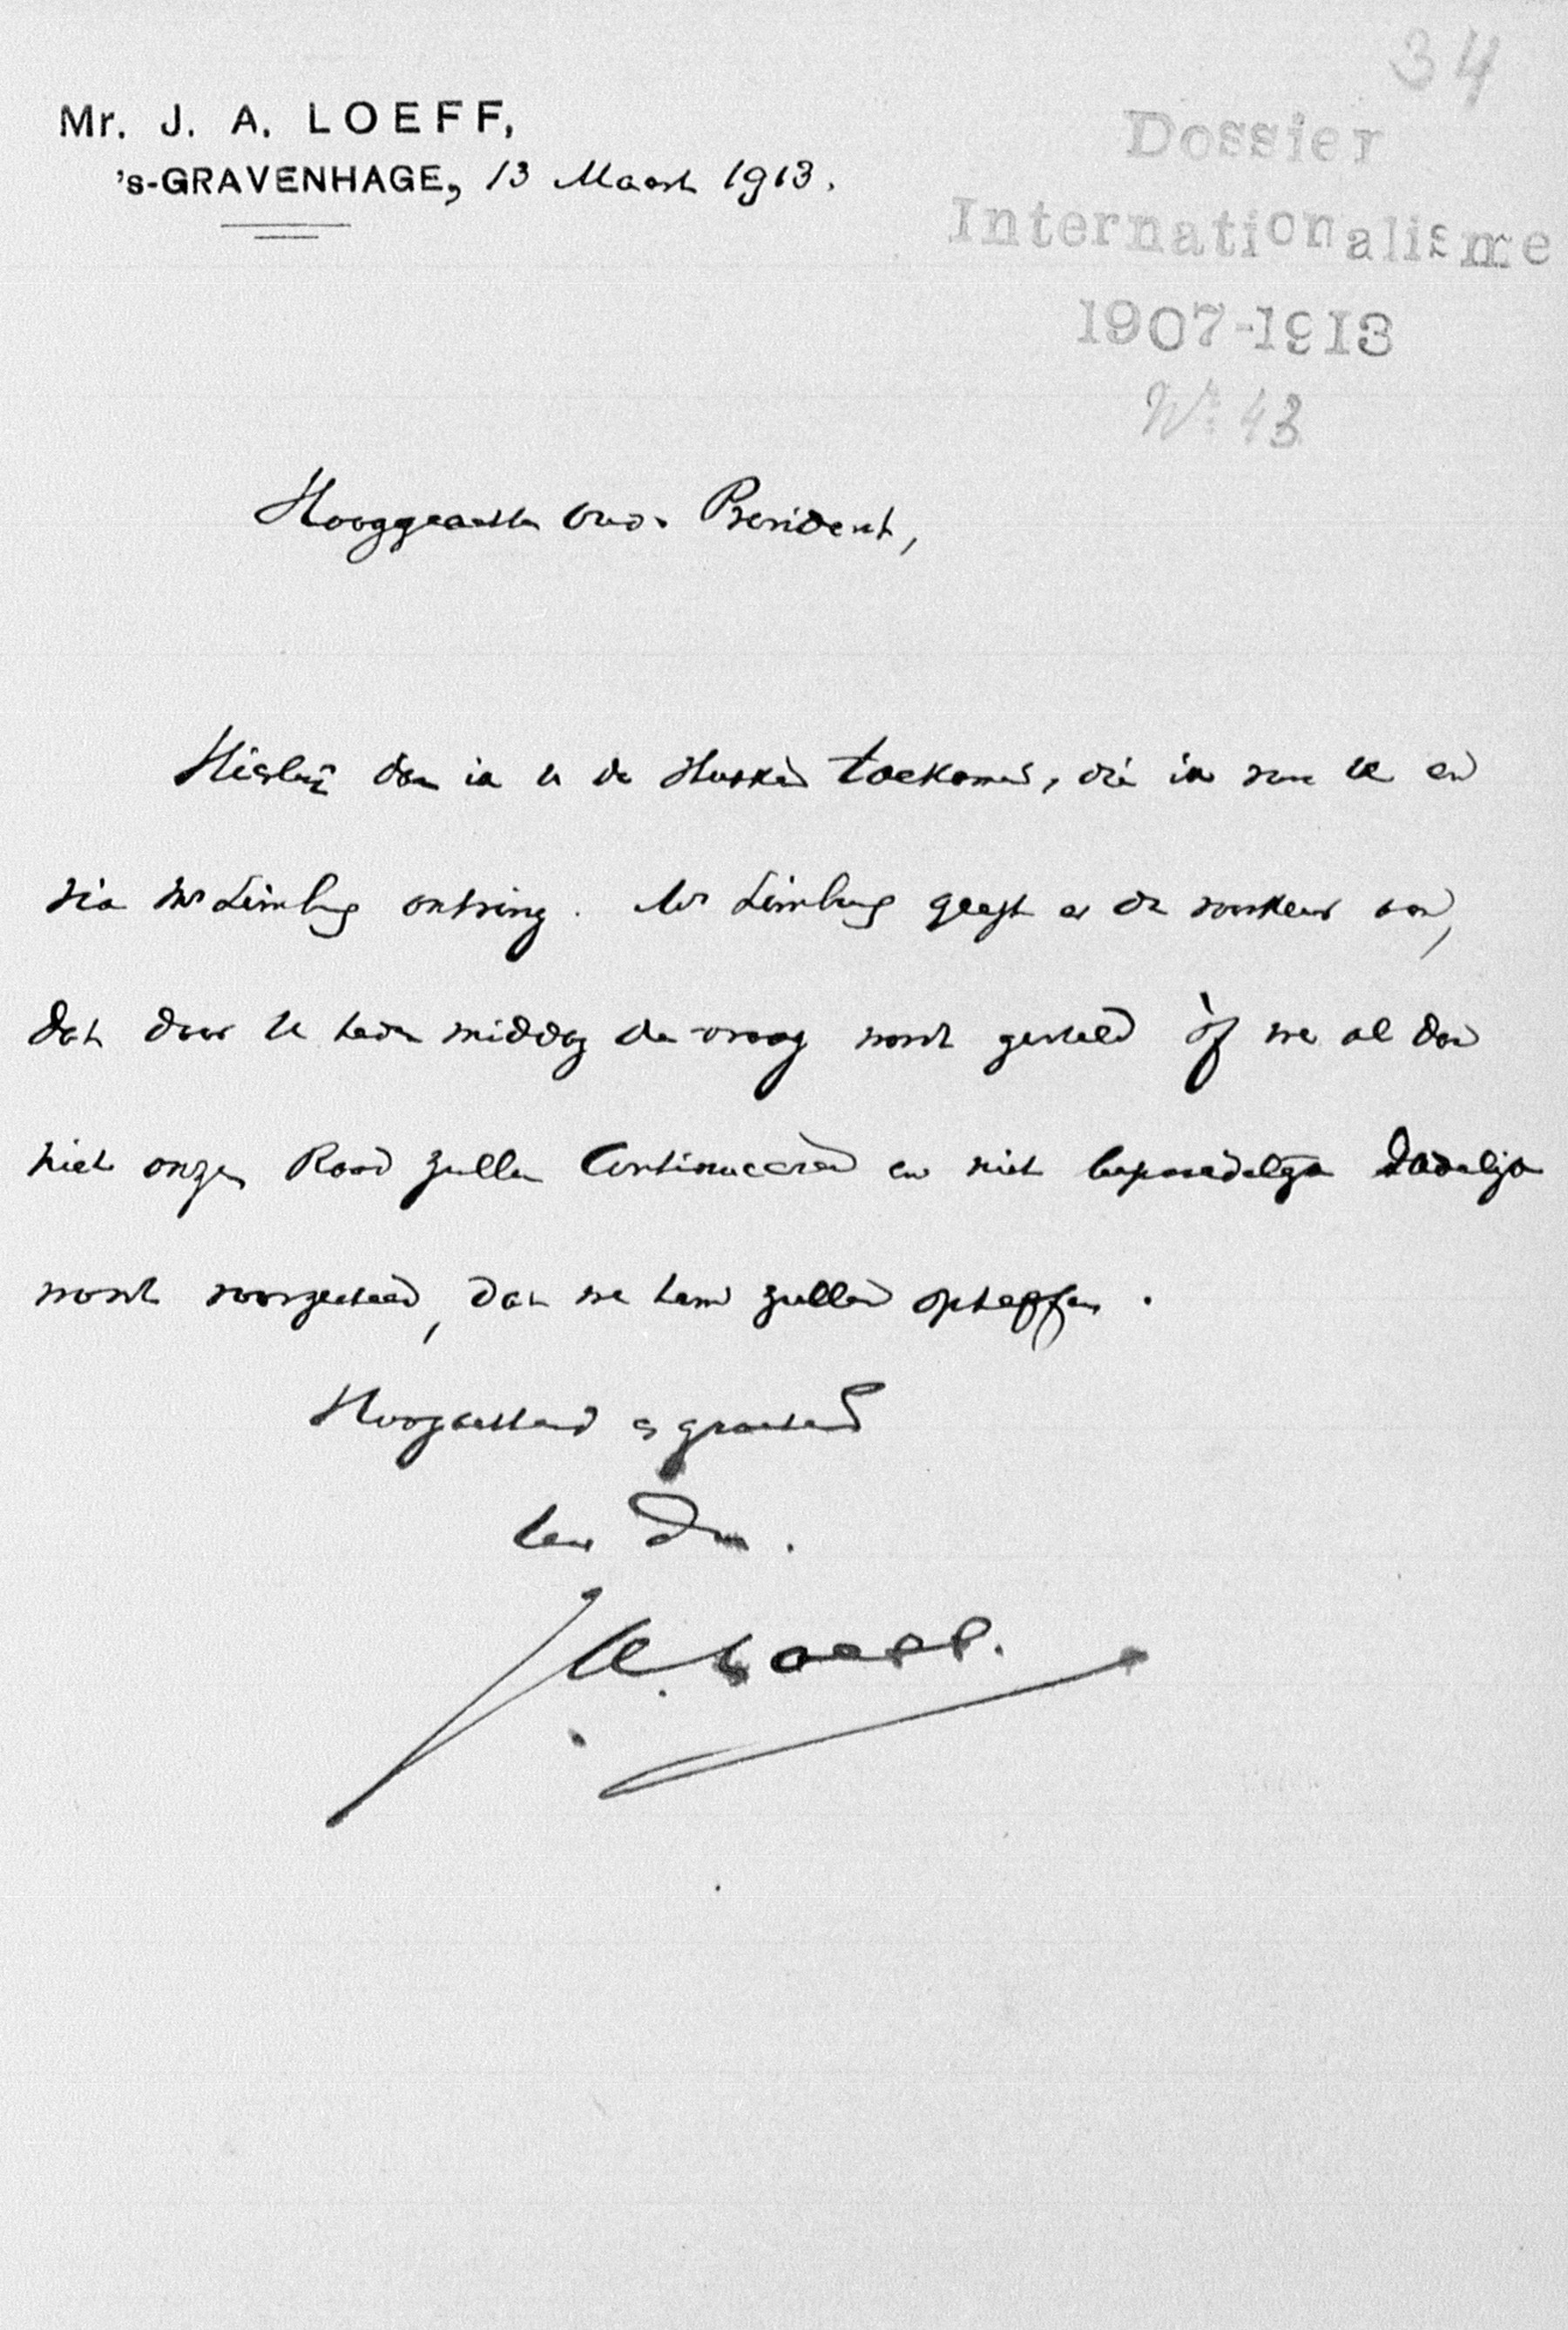 34
Mr. J. A. LOEFF,
's-GRAVENHAGE, 13 Maart 1913.
Dossier
Internationalisme
1907-1913
No 43
Hooggeachte Oud-President,
Hierbij doe ik U de stukken toekomen, die ik van U en
via Mr Limburg ontving. Mr Limburg geeft er de voorkeur aan,
dat door U heden middag de vraag wordt gesteld òf we al dan
niet onzen Raad zullen continueeren en niet dadelijk
wordt voorgesteld, dat we hem zullen opheffen.
Hoogachtend en groetend
Uw Dw.
J.A. Loeff.